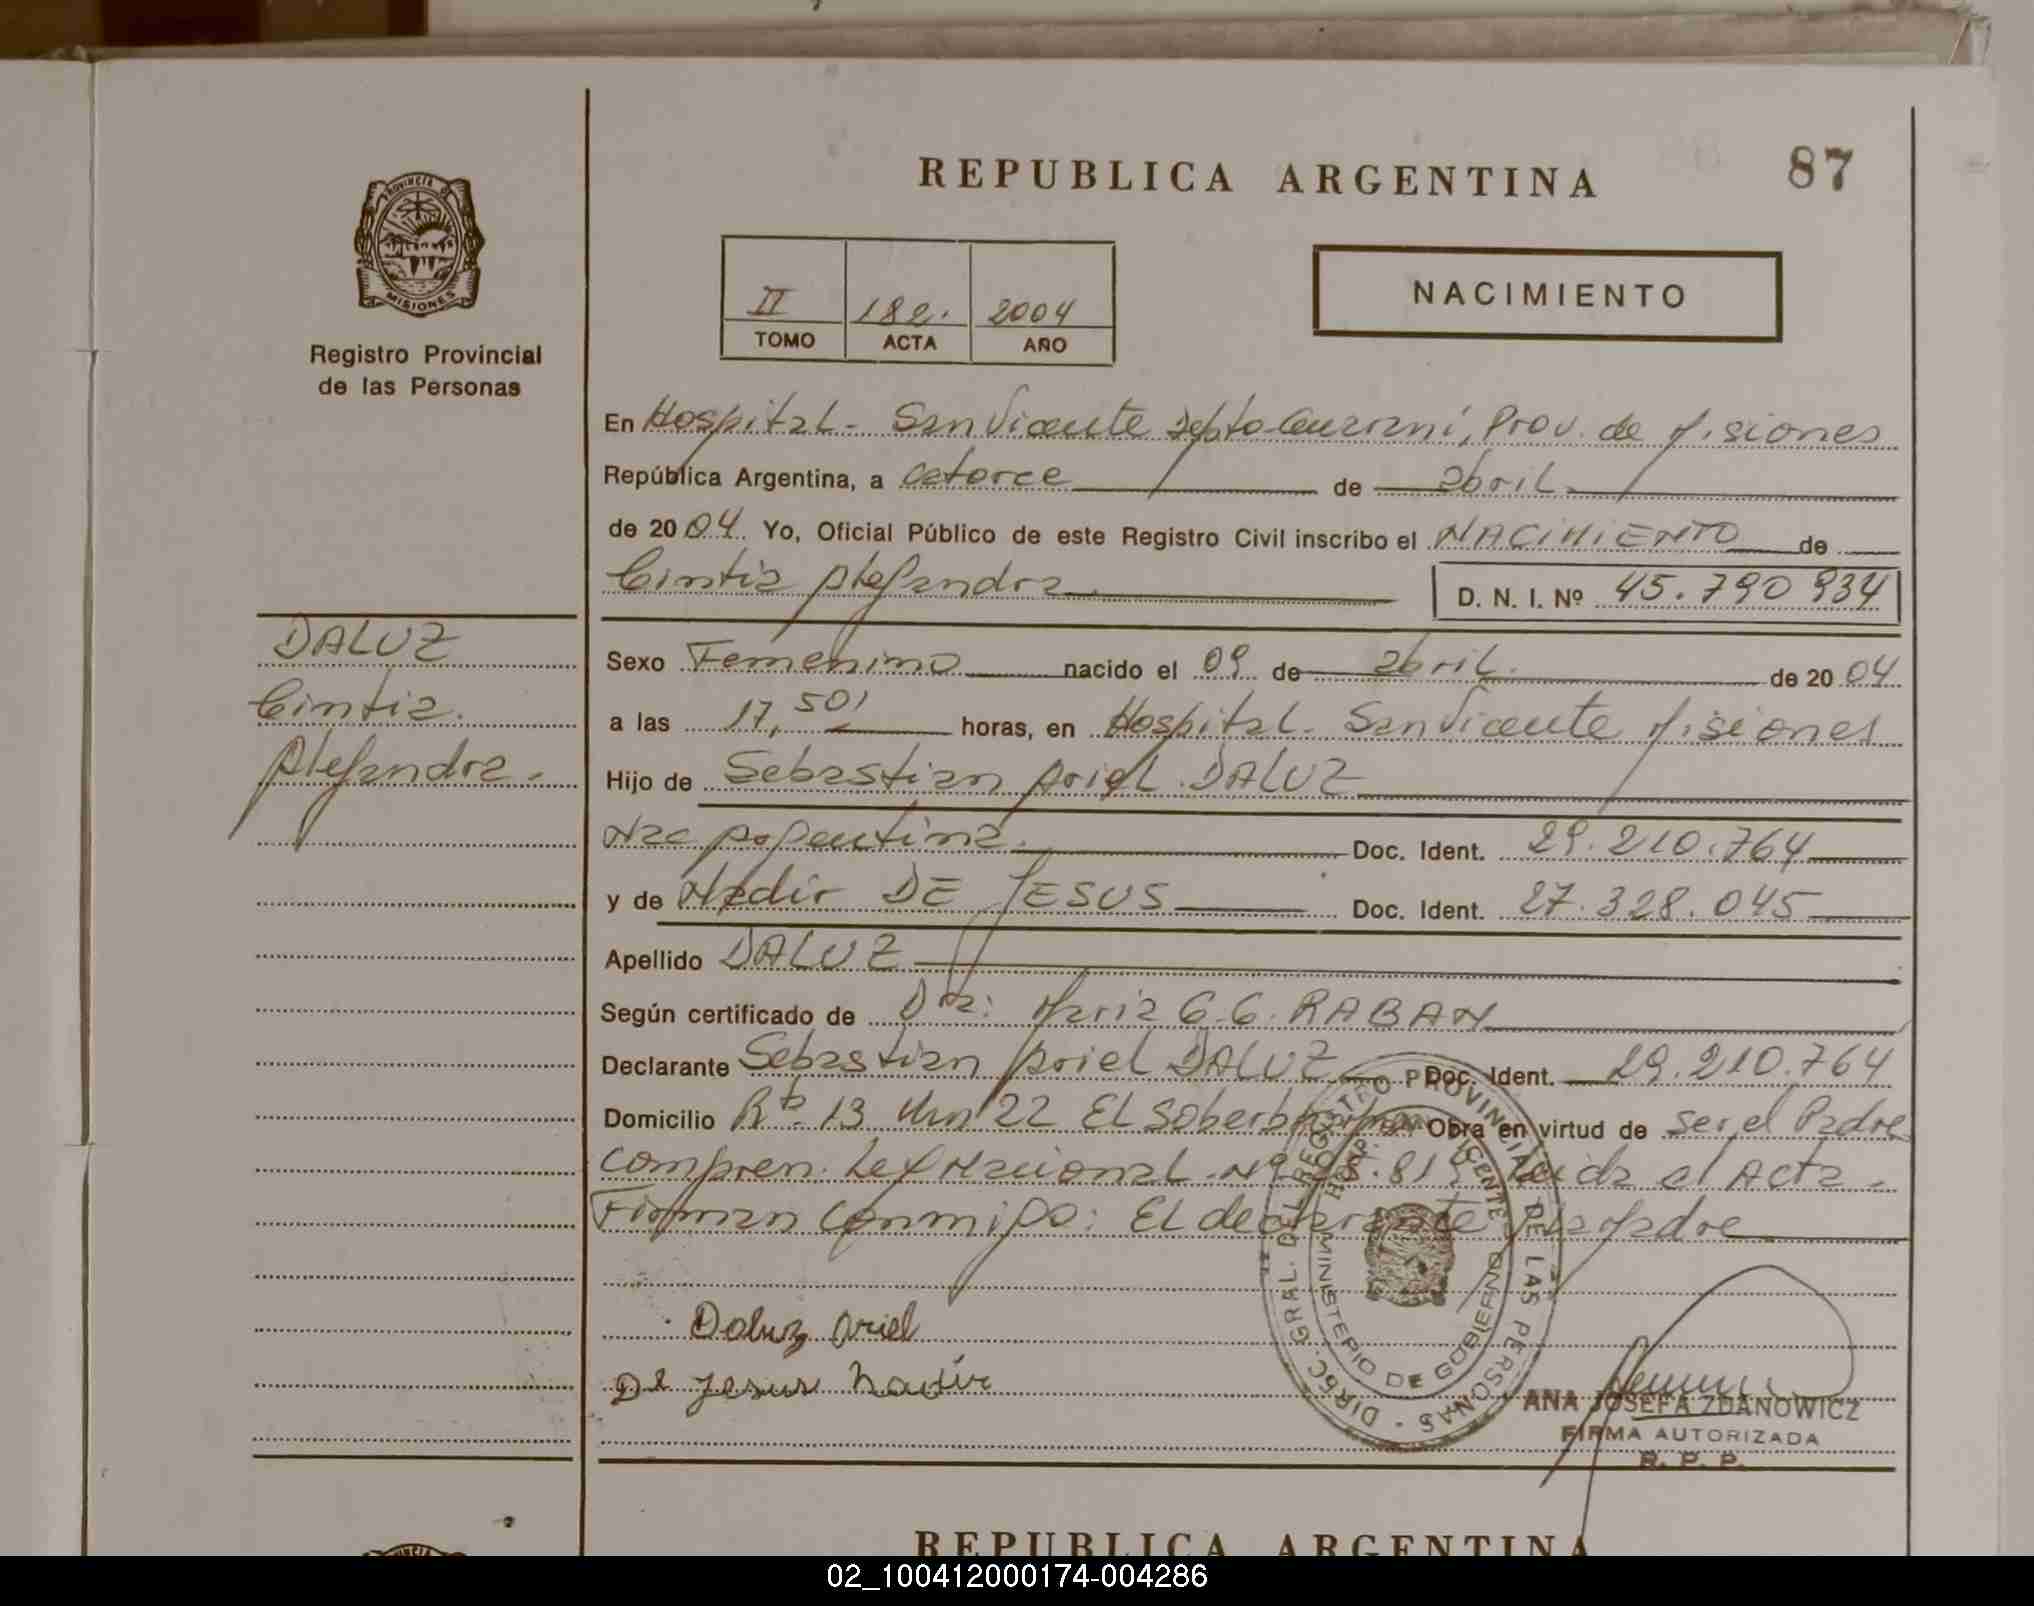 REPUBLICA ARGENTINA
87
PROVINCIA DE
MISIONES
Registro Provincial
de las Personas
II 182. 2004
TOMO ACTA AÑO
NACIMIENTO
En Hospital - San Vicente Depto Guarani, Prov. de Misiones
República Argentina, a catorce de abril
de 2004. Yo, Oficial Público de este Registro Civil inscribo el NACIMIENTO de
Cintia Alejandra
D. N. I. Nº 45.790 934
DALUZ
Cintia
Alejandra -
Sexo Femenino nacido el 09 de abril. de 2004
a las 17,50' horas, en Hospital - San Vicente Misiones
Hijo de Sebastian Ariel DALUZ
Nac Argentina. Doc. Ident. 29.210.764
y de Nadir DE JESUS Doc. Ident. 27.328.045
Apellido DALUZ
Según certificado de Dra: Maria G.G. RABAN
Declarante Sebastian Ariel DALUZ Doc. Ident. 29.210.764
Domicilio Rta. 13 Km 22 El Soberbio Obra en virtud de ser el Padre
Compren. Ley Nacional Nº Leida el Acta -
Firman conmigo: El declarante y la Madre
Daluz Ariel
De Jesus Nadir
DIREC. GRAL. DEL REGISTRO PROVINCIAL DE LAS PERSONAS
MINISTERIO DE GOBIERNO
ANA JOSEFA ZDANOWICZ
FIRMA AUTORIZADA
R. P. P.
REPUBLICA ARGENTINA
02_100412000174-004286